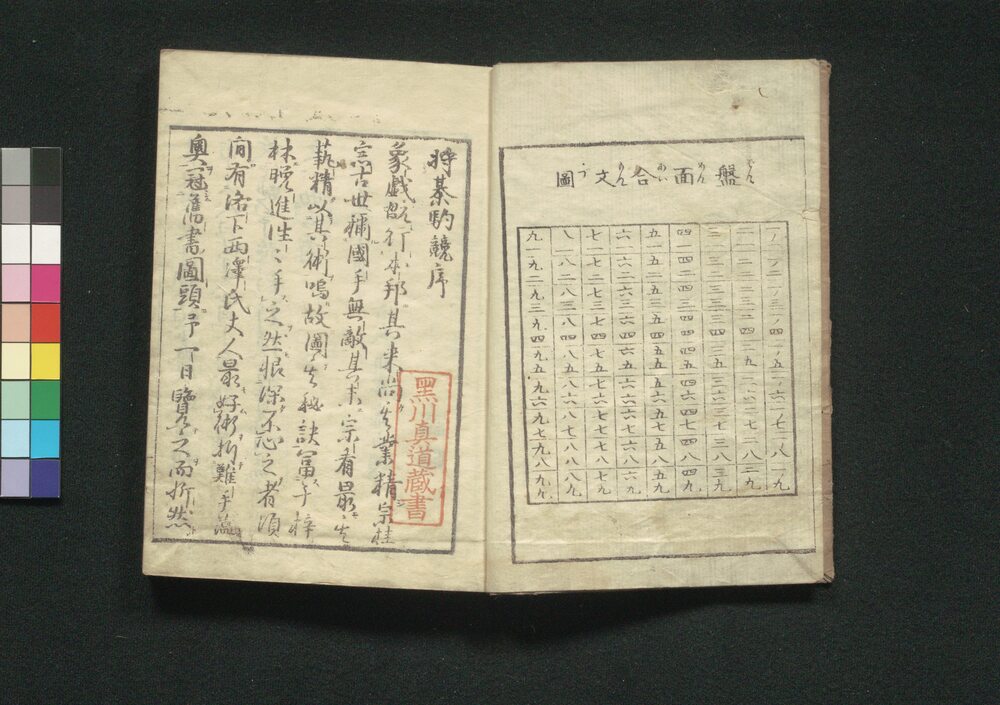 盤面合文圖
一一 一二 一三 一四 一五 一六 一七 一八 一九
二一 二二 二三 二四 二五 二六 二七 二八 二九
三一 三二 三三 三四 三五 三六 三七 三八 三九
四一 四二 四三 四四 四五 四六 四七 四八 四九
五一 五二 五三 五四 五五 五六 五七 五八 五九
六一 六二 六三 六四 六五 六六 六七 六八 六九
七一 七二 七三 七四 七五 七六 七七 七八 七九
八一 八二 八三 八四 八五 八六 八七 八八 八九
九一 九二 九三 九四 九五 九六 九七 九八 九九
將棊駒競序
象戯行本邦其来尚矣業精宗桂
古世稱國手無敵其末宗看最
精以其術鳴故圖秘訣冨于梓
林晩進手之然恨深不心之者須
間有洛下西澤氏丈人最好術析難手蘊
奥冠舊書圖頭予一日覽之而折然
黑川真道蔵書